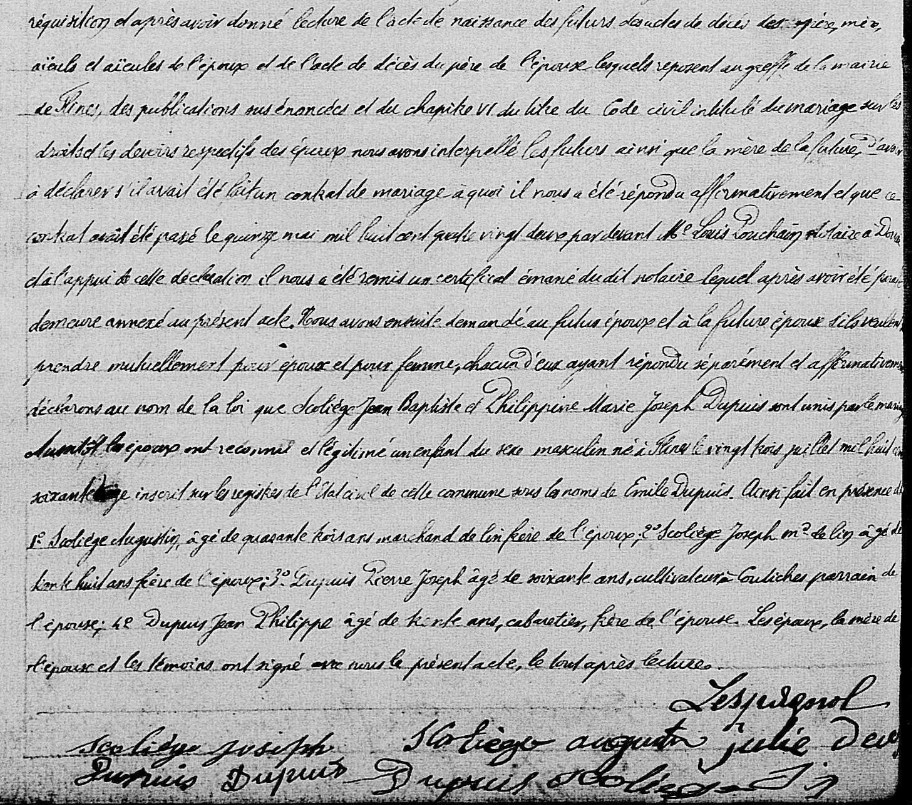 réquisition et après avoir donné lecture de l'acte de naissance des futurs des actes de décès des père, mère,
aïeuls et aïeules de l'époux et de l'acte de décès du père de l'épouse lesquels reposent au greffe de la mairie
de Flines, des publications sus énoncées et du chapitre VI du titre du Code civil intitulé du mariage sur les
droits et les devoirs respectifs des époux nous avons interpellé les futurs ainsi que la mère de la future, d'avoir
à déclarer s'il avait été fait un contrat de mariage à quoi il nous a été répondu affirmativement et que ce
contrat avait été passé le quinze mai mil huit cent quatre vingt deux par devant Me Louis Pouchain notaire à
et à l'appui de cette déclaration il nous a été remis un certificat émané du dit notaire lequel après avoir été
demeure annexé au présent acte. Nous avons ensuite demandé au futur époux et à la future épouse s'ils veulent
prendre mutuellement pour époux et pour femme, chacun d'eux ayant répondu séparément et affirmativement
déclarons au nom de la loi que Scoliège Jean Baptiste et Philippine Marie Joseph Dupuis sont unis par le mariage
Aussitôt les époux ont reconnu et légitimé un enfant du sexe masculin né à Flines le vingt trois juillet mil huit cent
soixante inscrit sur les registres de l'Etat civil de cette commune sous les noms de Emile Dupuis. Ainsi fait en présence de
1° Scoliège Augustin, âgé de quarante trois ans marchand de lin frère de l'époux; 2° Scoliège Joseph md de lin âgé de
trente huit ans frère de l'époux; 3° Dupuis Pierre Joseph âgé de soixante ans, cultivateur à Coutiches parrain de
l'épouse; 4e Dupuis Jean Philippe âgé de trente ans, cabaretier, frère de l'épouse. Les époux, la mère de
l'épouse et les témoins ont signé avec nous le présent acte, le tout après lecture.
Lespagnol
Scoliège Joseph Scoliège augustin julie
Dupuis Dupuis Dupuis scoliège